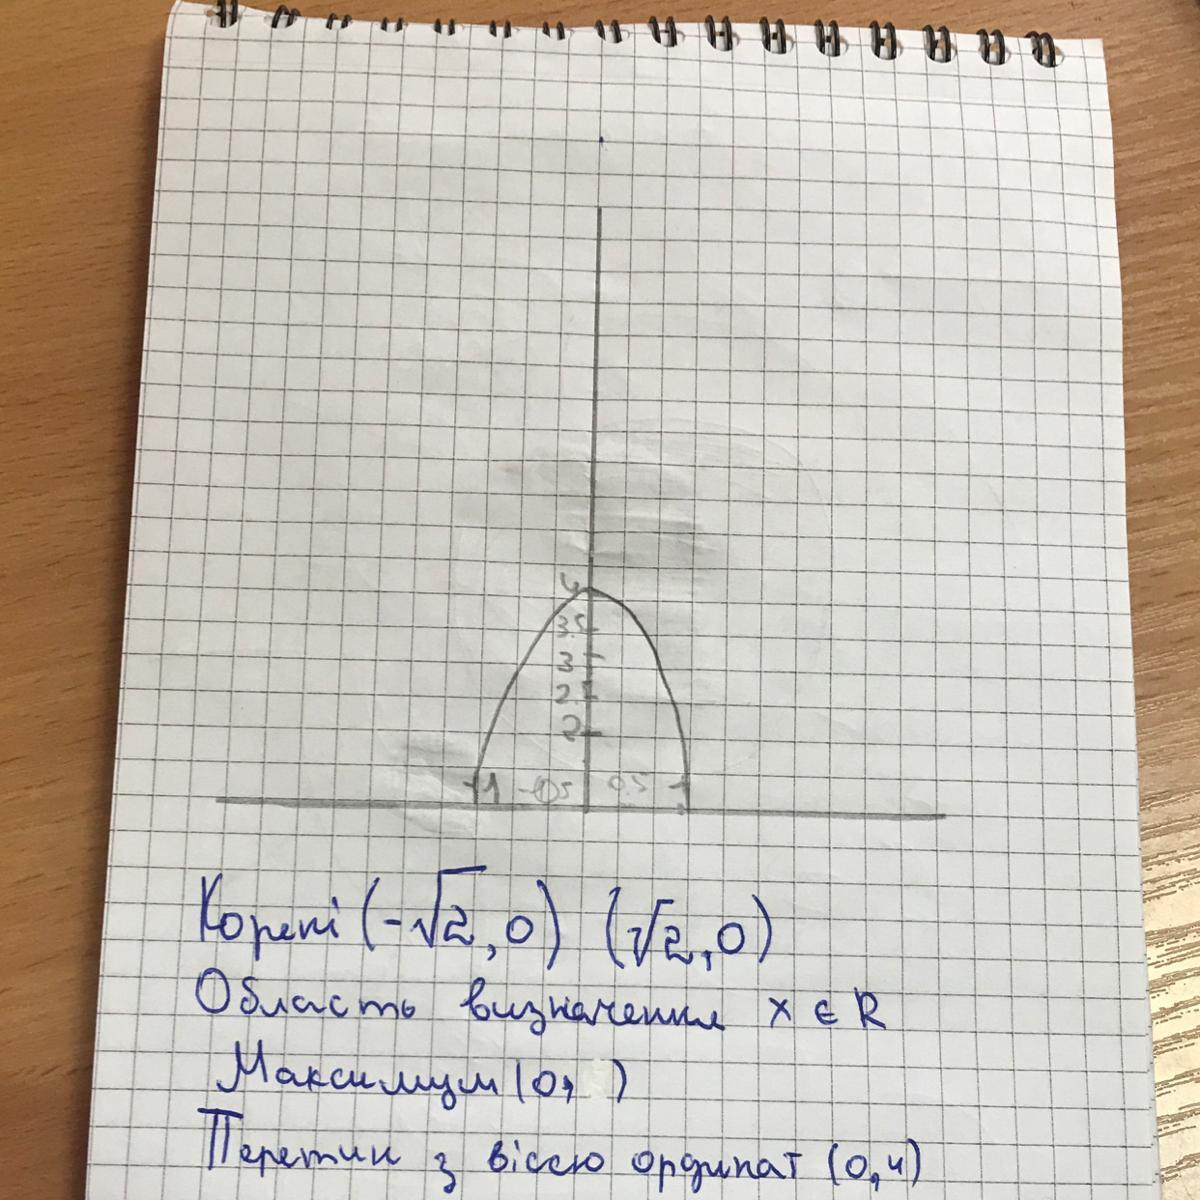 4
3.5
3
2.5
2
-1 -0.5 0.5 1
Корені (-√2, 0) (√2, 0)
Область визначення x ∈ R
Максимум (0, )
Перетин з віссю ординат (0,4)